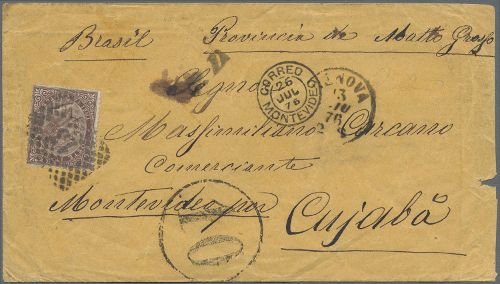 Brasil Provincia de Matto Grosso
Segno
Massimiliano Carcano
Comerciante
Montevideo per Cujabâ
CORREO
26
JUL
76
MONTEVIDEO
GENOVA
3
76
10